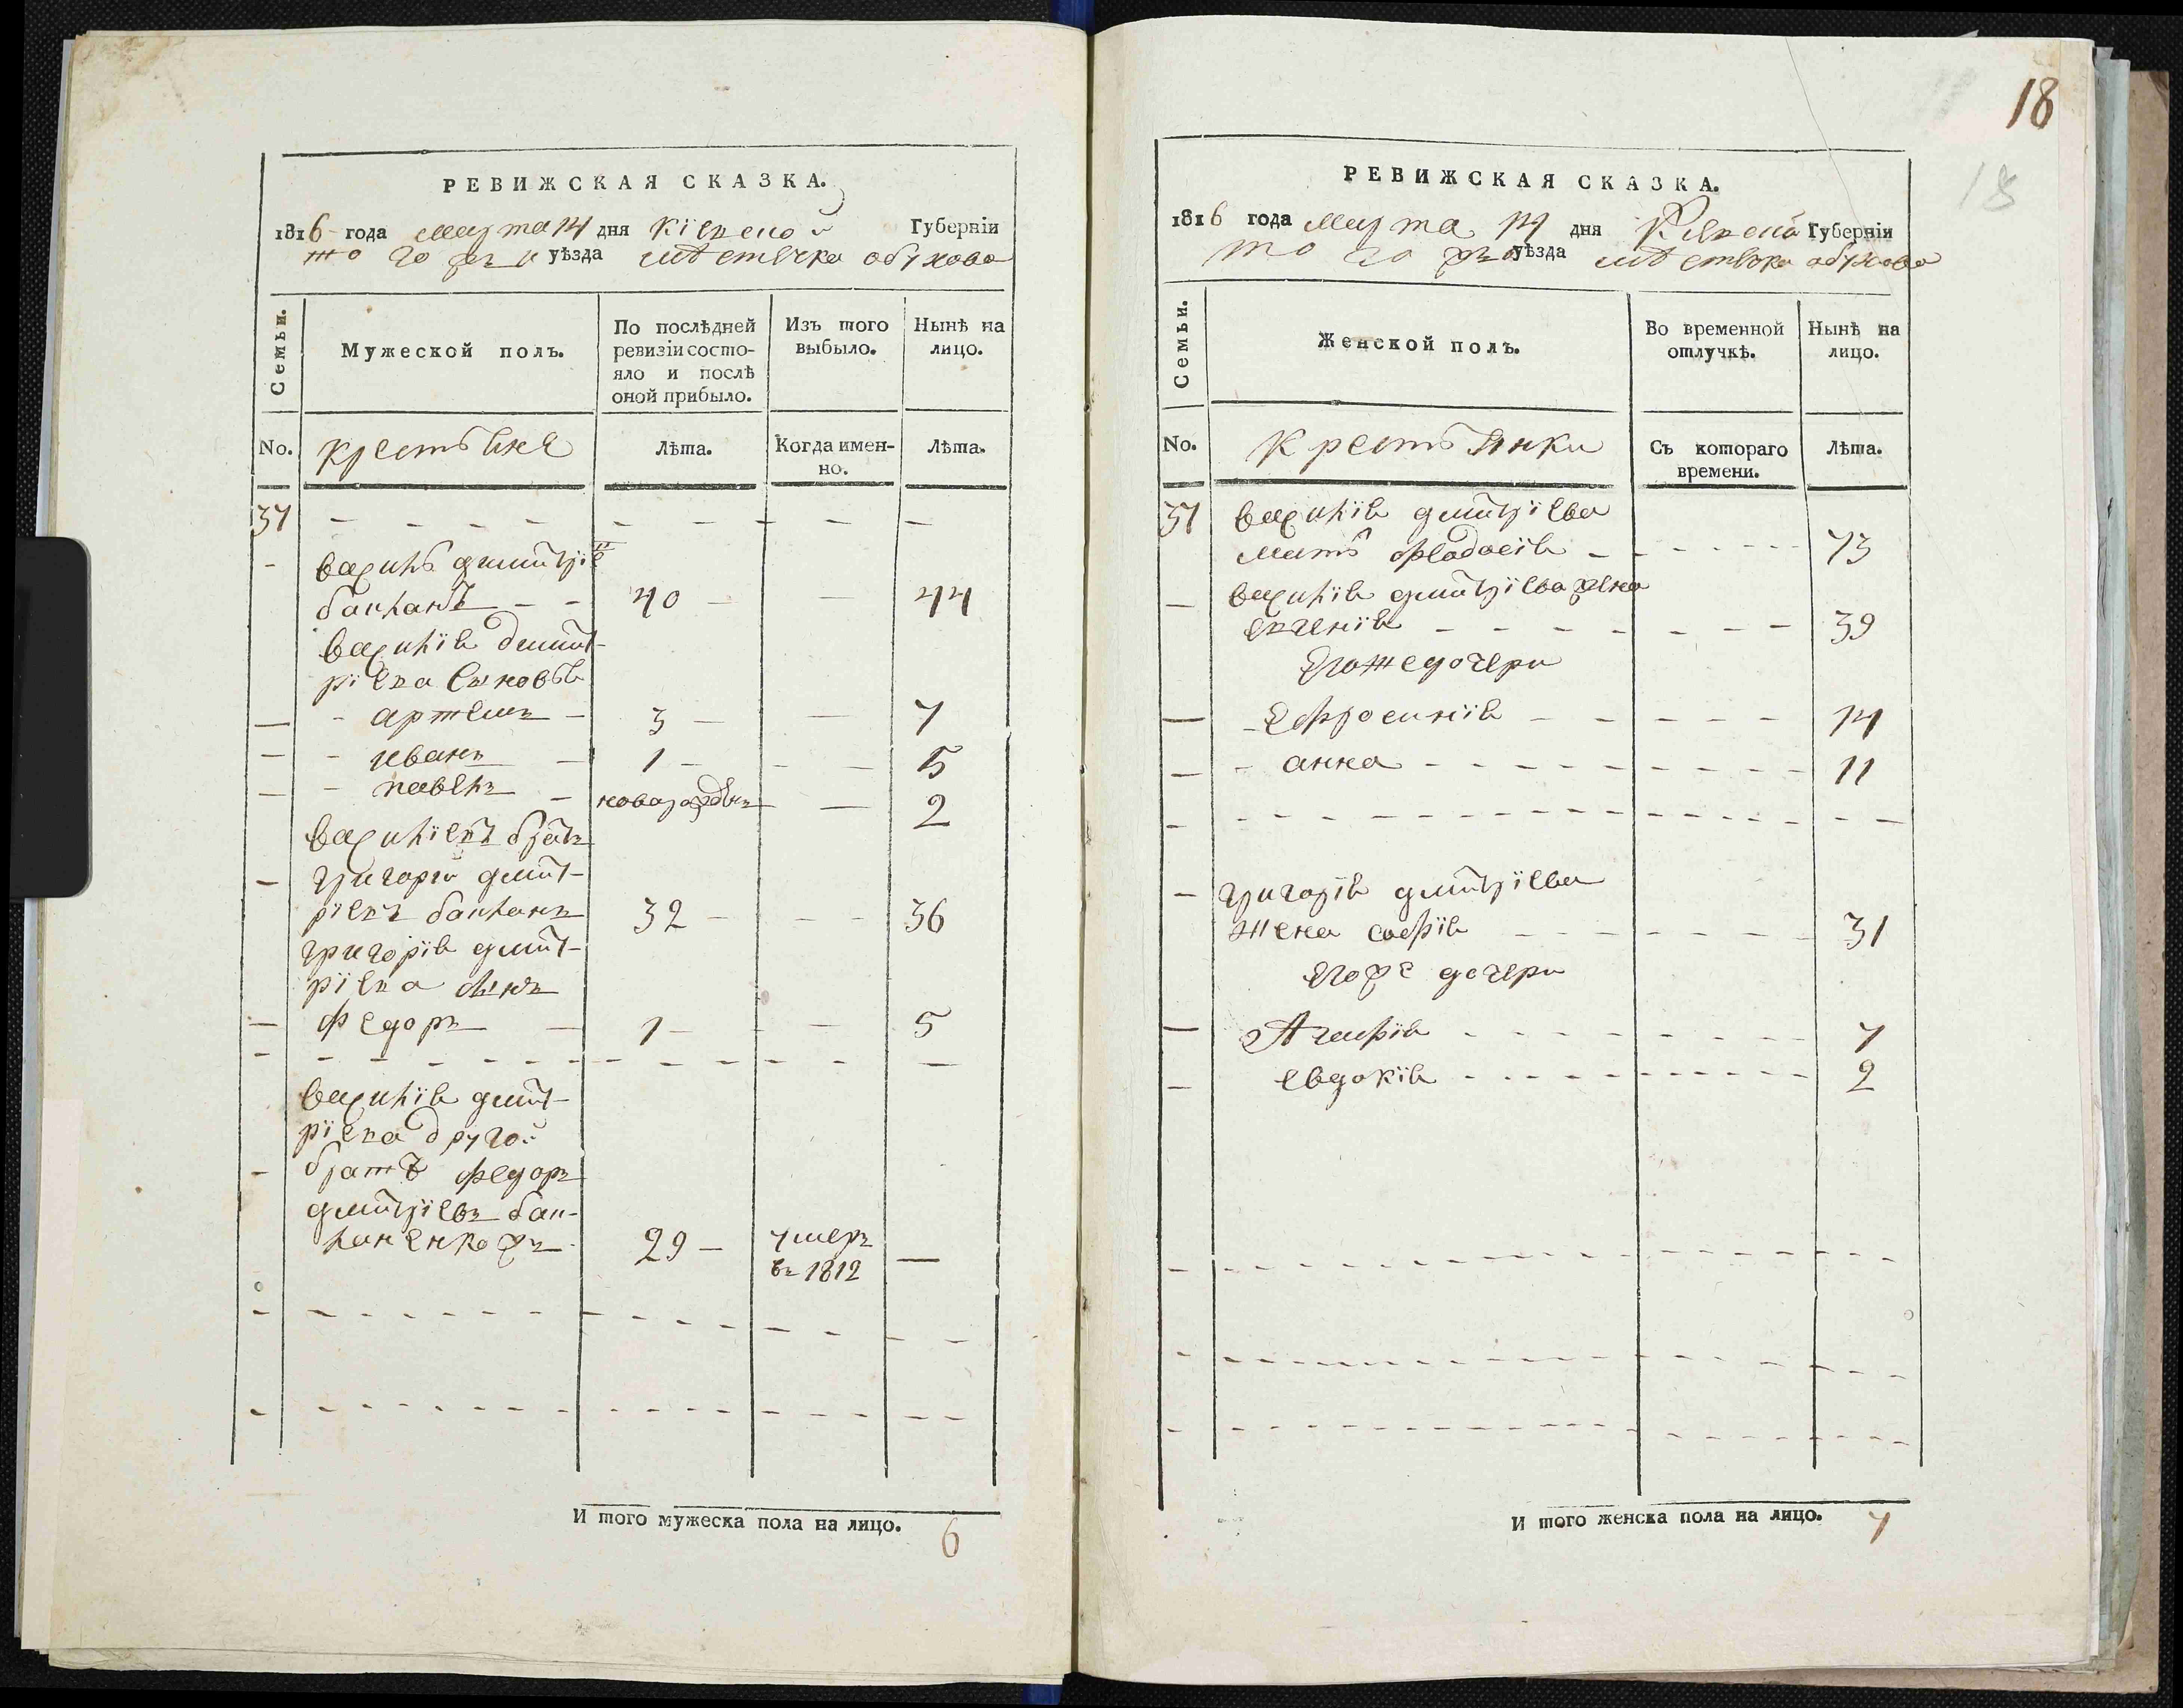 РЕВИЖСКАЯ СКАЗКА.
1816 года марта 14 дня Кіевской Губерніи
того жъ уѣзда мѣстечка обухова
Семьи.
Мужеской полъ.
По послѣдней ревизіи состо-
яло и послѣ
оной прибыло.
Изъ того
выбыло.
Нынѣ на
лицо.
No.
крестьяне
Лѣта.
Когда имен-
но.
Лѣта.
37
василь дмитріе
40 44
василія дмит-
ріева сыновья
артемъ 3 7
иванъ 1 5
павелъ новорожденъ 2
василіевъ братъ
григорій дмит-
ріевъ 32 36
григорія дмит-
ріева сынъ
федоръ 1 5
василія дмит-
ріева другой
братъ федоръ
дмитріевъ
29 умеръ
въ 1812
И того мужеска пола на лицо. 6
18
18
РЕВИЖСКАЯ СКАЗКА.
1816 года марта 14 дня Кіевской Губерніи
того жъ уѣзда мѣстечка обухова
Семьи.
Женской полъ.
Во временной
отлучкѣ.
Нынѣ на
лицо.
No.
Крестьянки
Съ котораго
времени.
Лѣта.
37 василія дмитріева
мать феодосія 73
василія дмитріева жена
евгенія 39
егоже дочери
Ефросинія 14
анна 11
григорія дмитріева
жена софія 31
егоже дочери
Агафія 7
евдокія 2
И того женска пола на лицо. 7